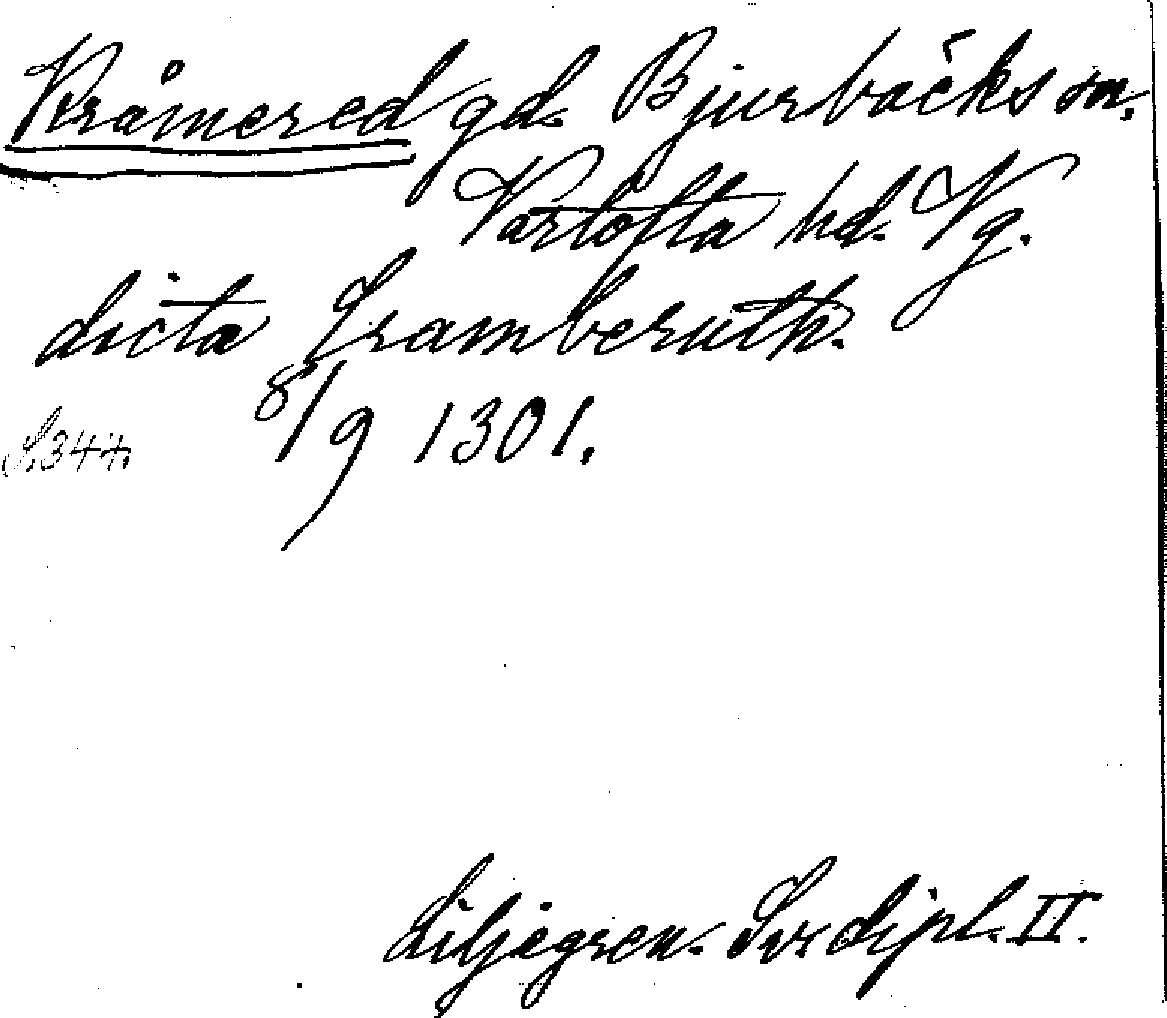 Kråmered gd. Bjurbäcks sn.
Vartofta hd. Vg.
dicta Tramberuth.
8/9 1301.
S.344.
Liljegren. Sv. dipl. II.